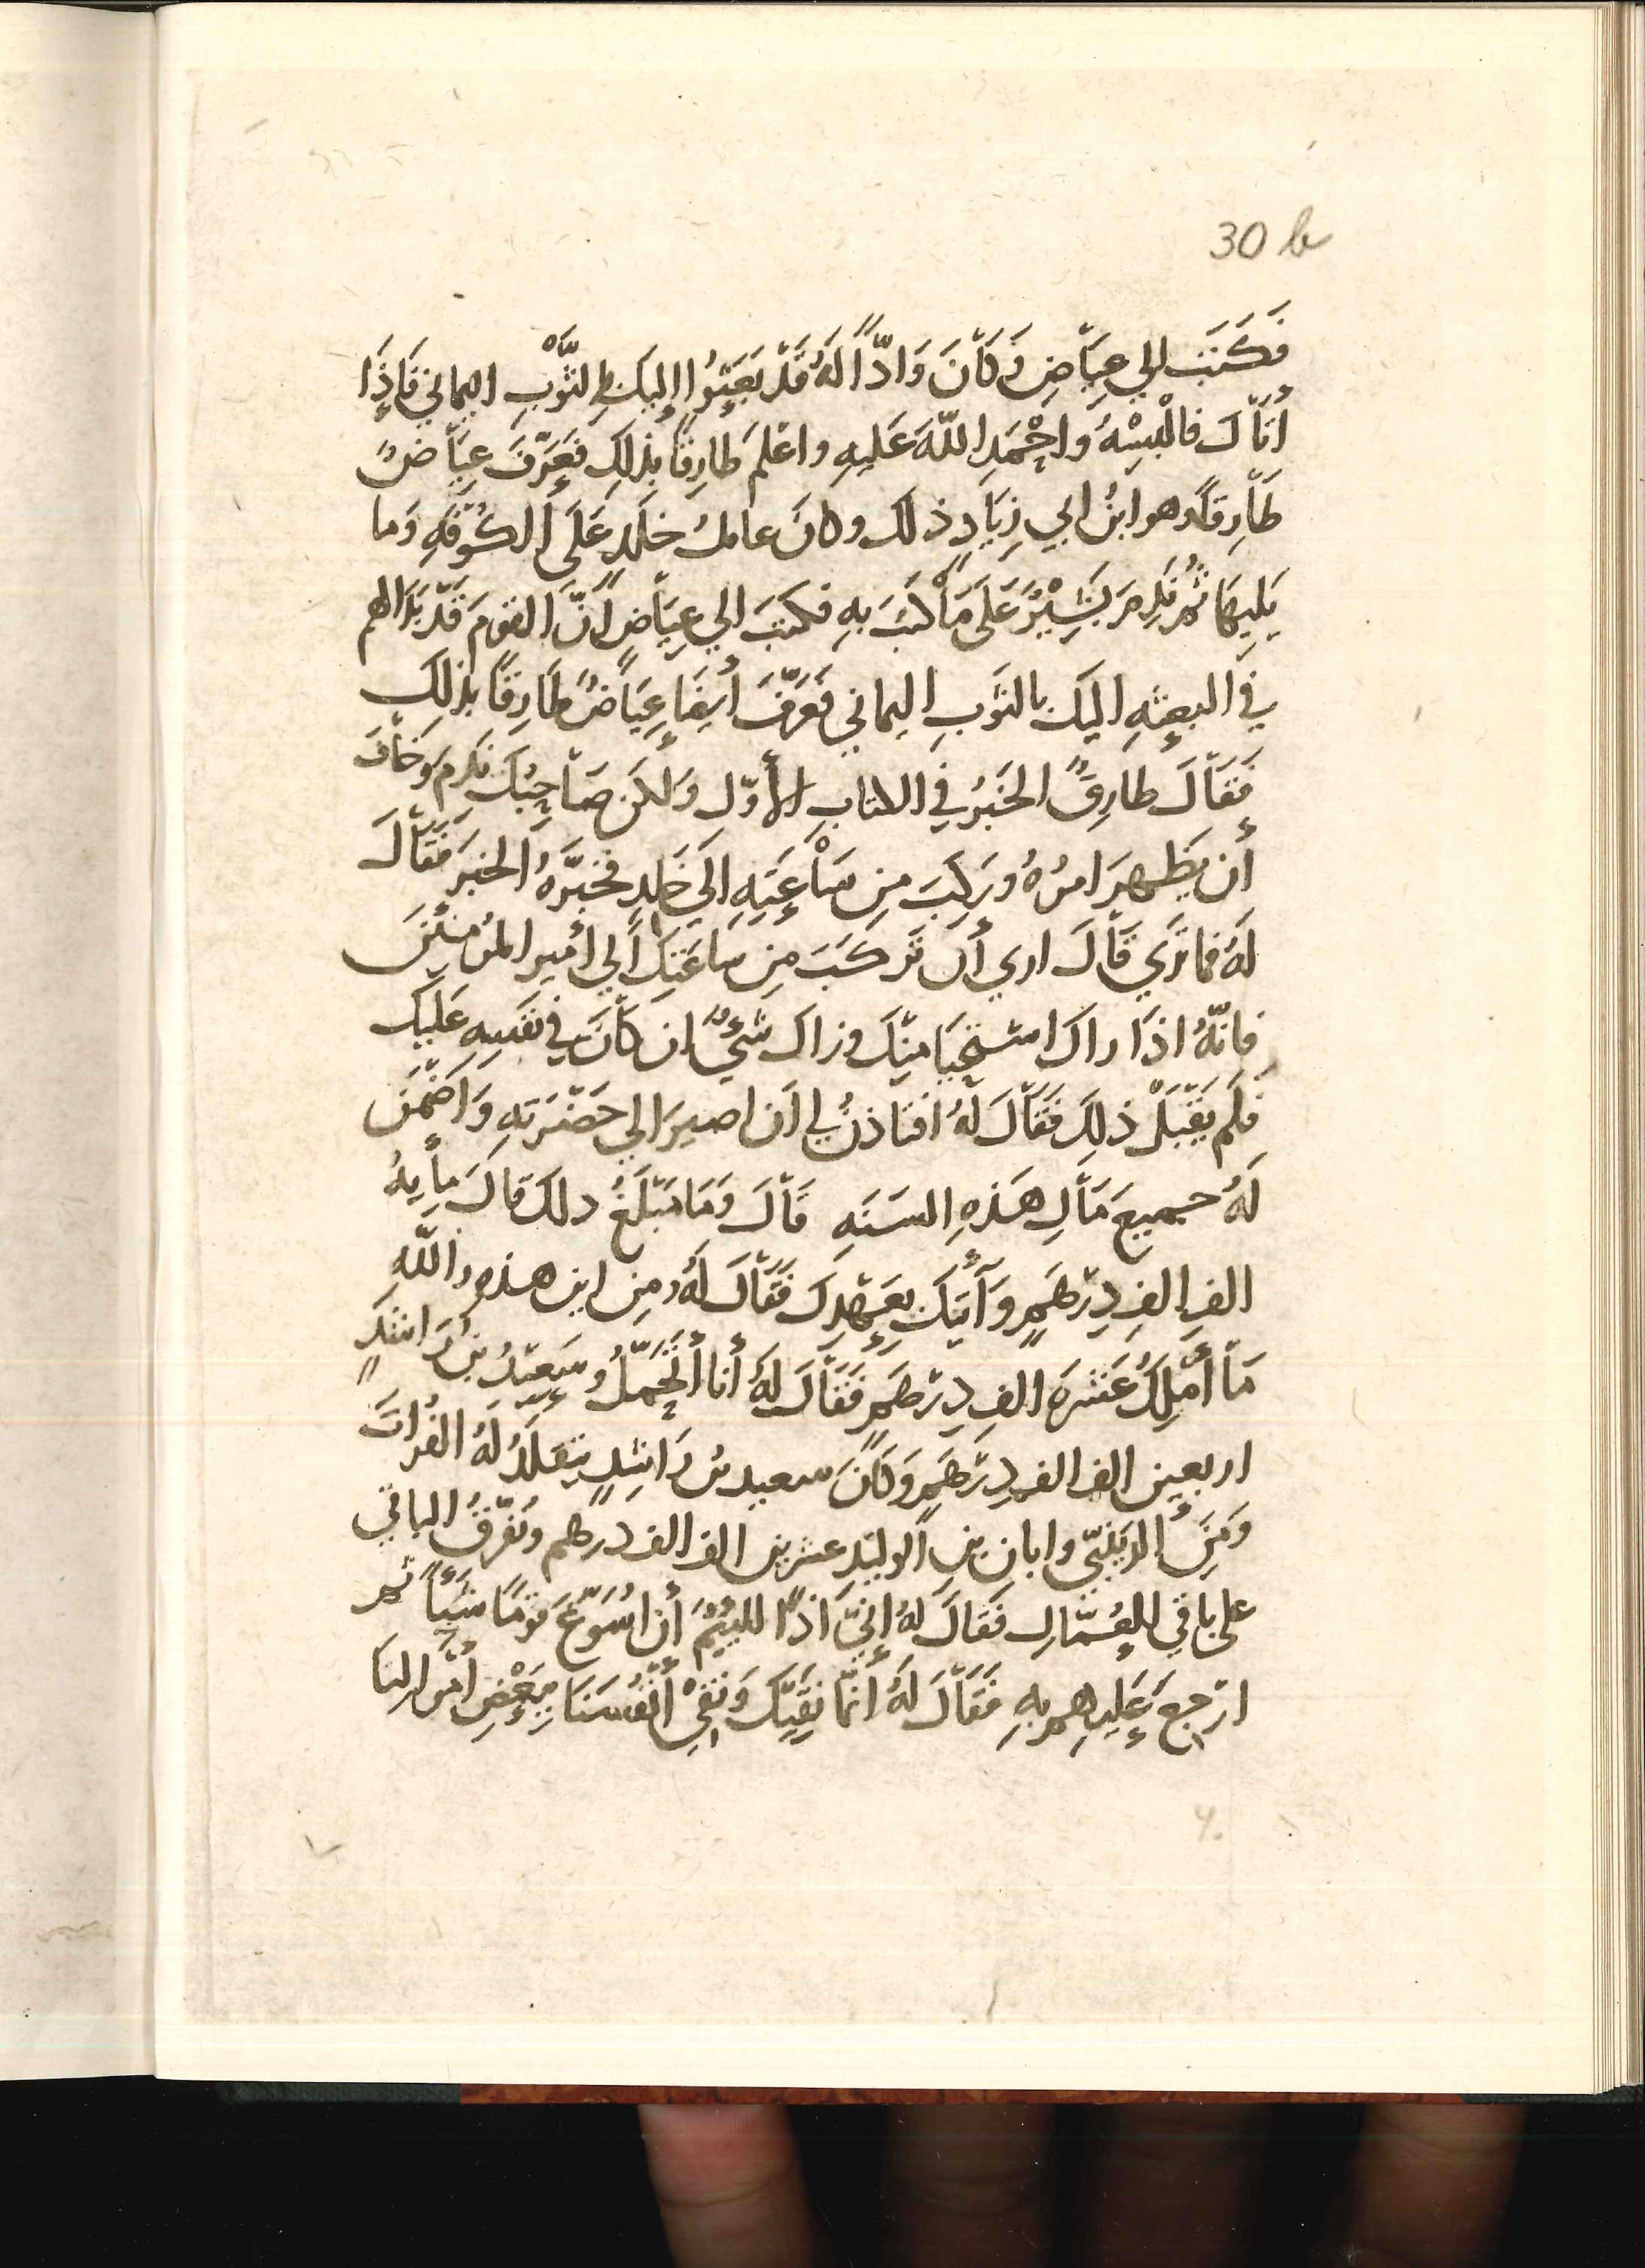 30 b
فَكَتَب الي عِيَاضِ وَكَانَ وَادًّا لَهُ قَدْ بَعَثُوا إليكَ بالثَّوْبِ اليماني فَاِذَا
أتَاكَ فالْبِسْهُ واحْمَدِ اللّهَ عَليهِ واعْلم طارِقًا بذلِك فَعَرَّفَ عِيَاضٌ
طَارِقًا وهو ابنُ ابي زِيَادٍ ذلك وكانَ عامِلَ خلَدٍ عَلَى الكُوفَهِ وَما
يَلِيهَا ثُم نَدِمَ بَشِيْرٌ عَلَى مَا كَتَبَ بهِ فكتبَ الي عِيَاضٍ أنَّ القومَ قَدْ بَدَا لهم
في البعثهِ اليكَ بالثَّوبِ اليماني فَعَرَّفَ أيضَا عِيَاضٌ طَارِقًا بذلِك
فَقَالَ طارِقٌ الخَبَرُ في الكتابِ الأوّلِ وَلكن صَاحِبُكَ نَدِمَ وَخَافَ
أن يظْهرَ امرُهُ وَرَكِبَ مِن سَاعَتِهِ الَي خَلدٍ فخبَّرَهُ الخبَرَ فَقَالَ
لَهُ فما تَري قَالَ اري أن تَركَبَ مِن سَاعَتِكَ الي أميرِ المؤمنِينَ
فانّهُ اذَا رآكَ استَحْيَا مِنكَ وزال شَيءٌ إن كَانَ في نفسِهِ عَلَيكَ
فلَم يَقْبَلْ ذلِكَ فَقَالَ لَهُ افتاذنُ لي ان اصيرَ الي حَضْرَتِهِ وَاضْمَن
لَهُ جميعَ مَالِ هَذِهِ السَنَهِ قَالَ وَمَا مَبْلَغُ ذلك قالَ مِأيهُ
الفِ الفِ دِرْهَمٍ وَآتيكَ بِعَهْدِكَ فَقَالَ لَهُ ومِن اين هذه واللّهِ
مَا أَمْلِكُ عَشرهَ الفِ دِرْهَمٍ فَقَالَ لَهُ أنا أتَحَمَّلُ وسَعِيْدُ بن رَاشدٍ
اربعين الف الفِ دِرْهَمٍ وَكَانَ سعيد بنُ رَاشِدٍ يتقلَدُ لَهُ الفُراتَ
وَمِنَ الزَيْنَبِّي وابان بنِ الوليْدِ عشرين الف الف درهم ونُفَرِّقُ الباقي
علي باقي العُمَّالِ فَقَالَ لَهُ إنِّي اذًا للئيمٌ أن أُسَوِّغَ قومًا شَيْأً ثم
ارْجعَ عَليهِم بهِ فَقَالَ لَهُ أنمّا نَقِيكَ وَنَقِيْ أنْفُسَنَا بِبَعْضِ أمْوالِنَا